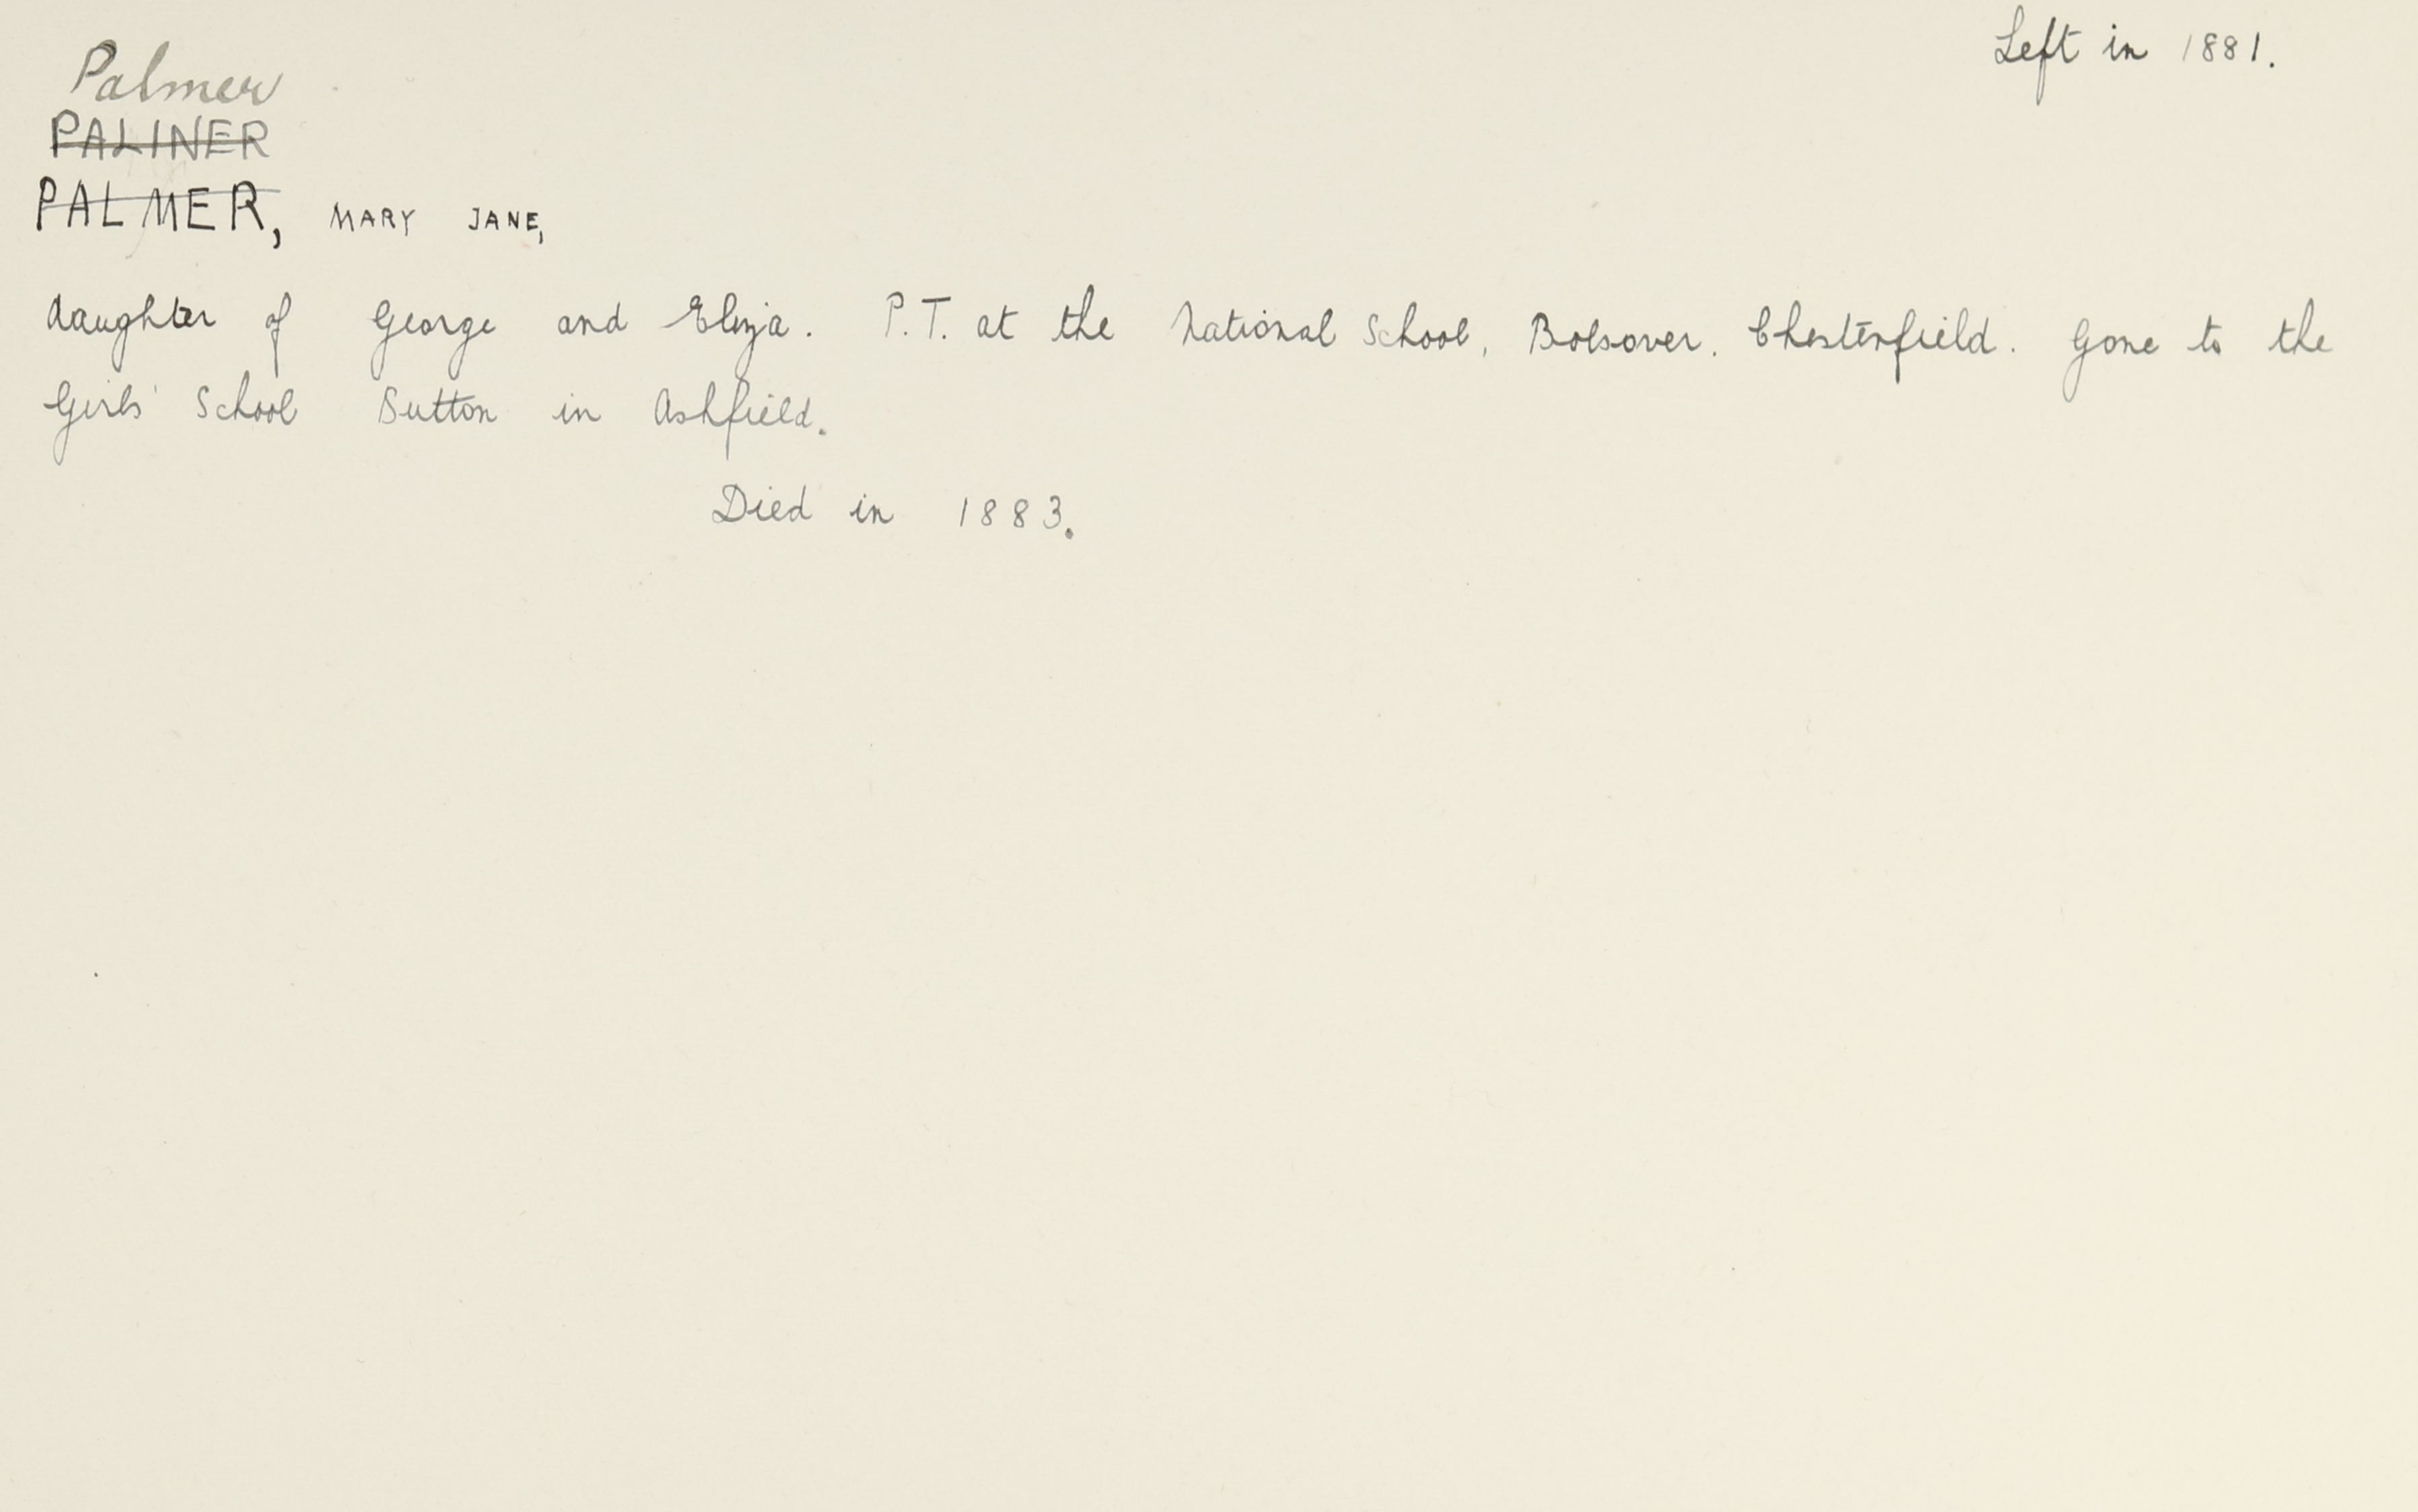 Left in 1881.
Palmer
PALINER
PALMER, MARY JANE,
daughter of George and Eliza. P.T. at the National School, Bolsover. Chesterfield. Gone to the
Girls' School Sutton in Ashfield.
Died in 1883.